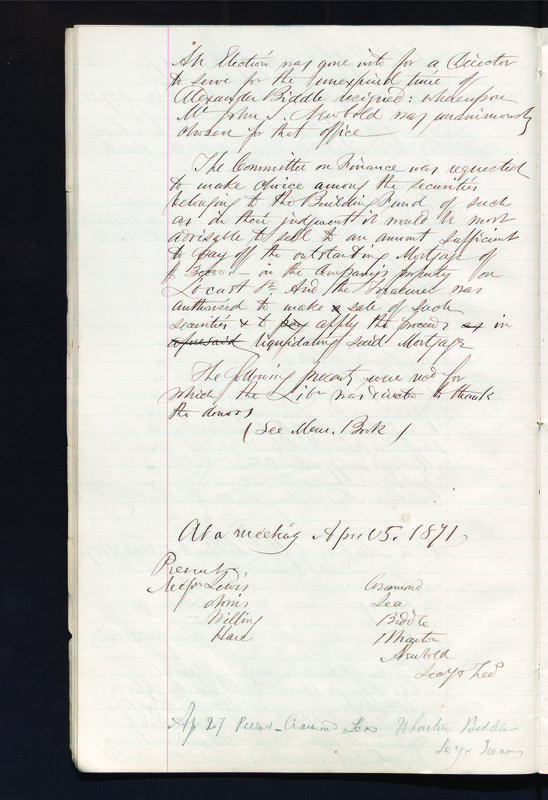 An Election was gone into for a Director
to serve for the unexpired time of
Alexander Biddle resigned: whereupon
Mr John S. Newbold was unanimously
chosen for that office
The Committee on Finance was requested
to make choice among the securities
belonging to the Building Fund of such
as in their judgment it would be most
advisable to sell to an amount sufficient
to pay off the outstanding Mortgage of
in the Company's property on
Locust St. And the Treasurer was
authorised to make a sale of such
securities & to pay apply the proceeds as in
aforesaid liquidating said Mortgage
The following presents were recd for
which the Libn was directed to thank
the donors
(See Mem. Book)
At a meeting April 5. 1871,
Present
Messrs Lewis Cramond
Norris Lea
Willing Biddle
Hare Wharton
Newbold
Secy & Tres
Ap 27 Present - Cramond Lea Wharton Biddle
Secy & Treas